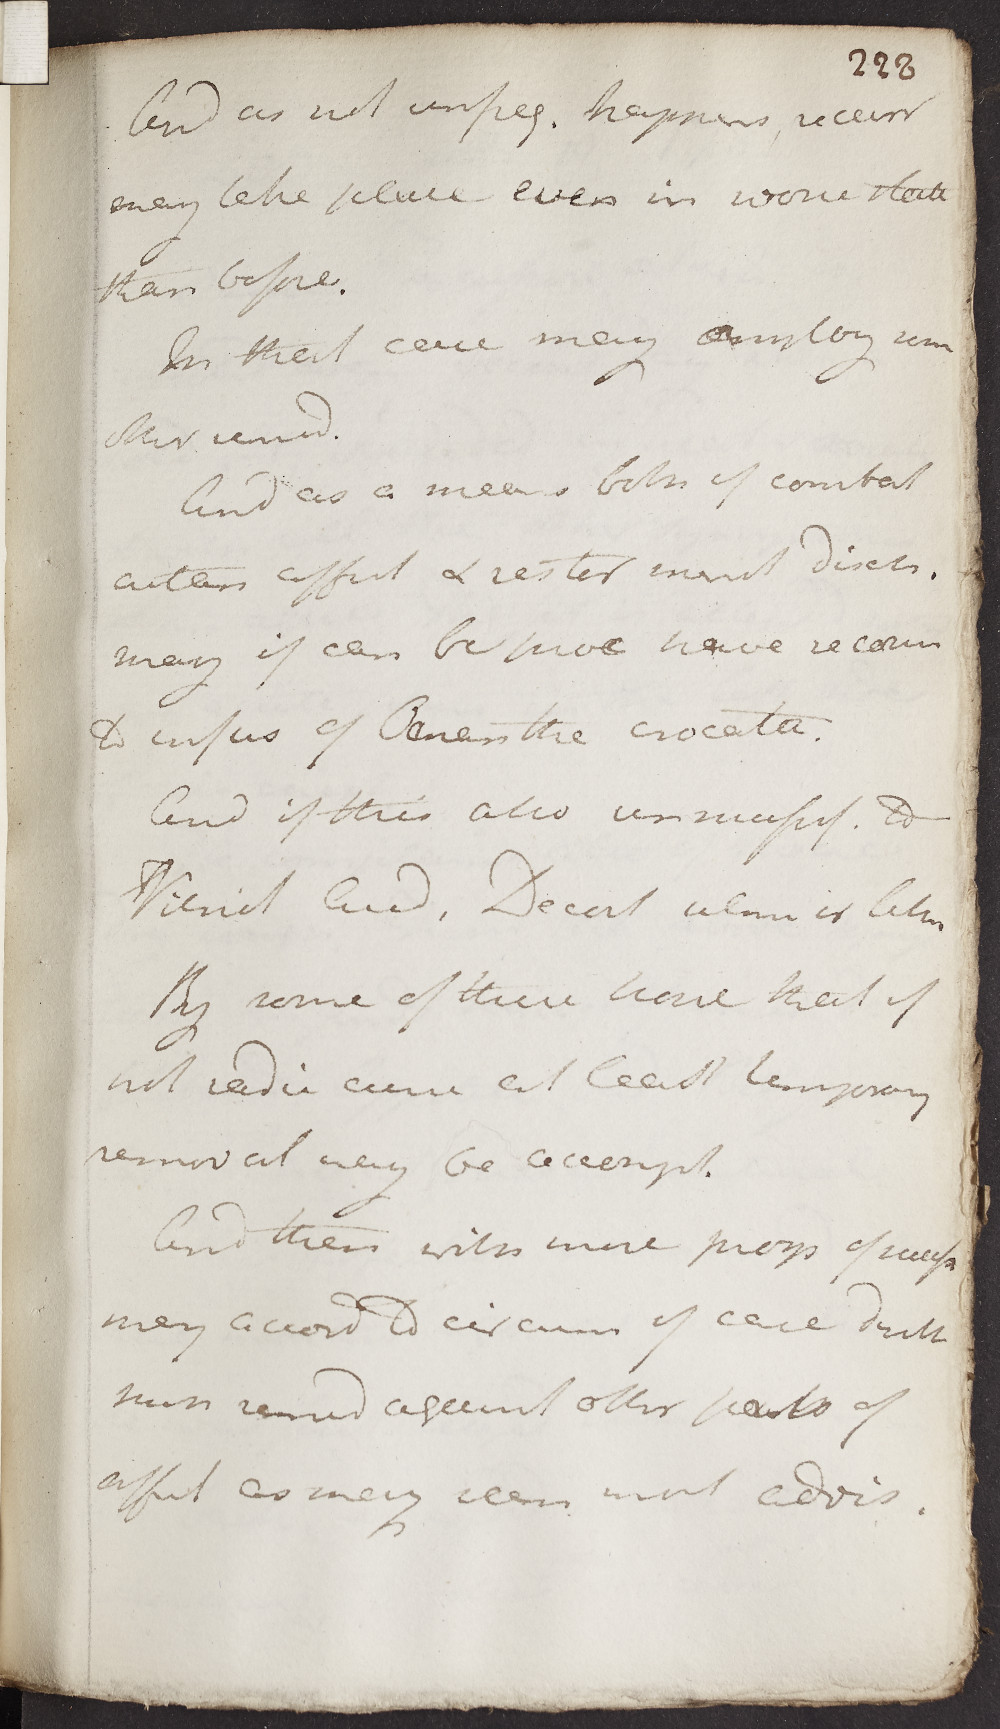 223
And as not unfreq. happens, recurr
may take place even in worse state
than before.
In that case may employ som
other remed.
And as a means both of combat
cutan affect & restor menst disch.
may if can be proc have recours
to infus of Oenanthe crocata.
And if this also unsuccessf. to
Vitriol Acid, Decoct ulmi
By some of these hope that if
not radic cure at least temporary
removal may be accompl.
And then with more prosp of success
may accord to circum of case
remed against other parts of
affect as may seem most advis.